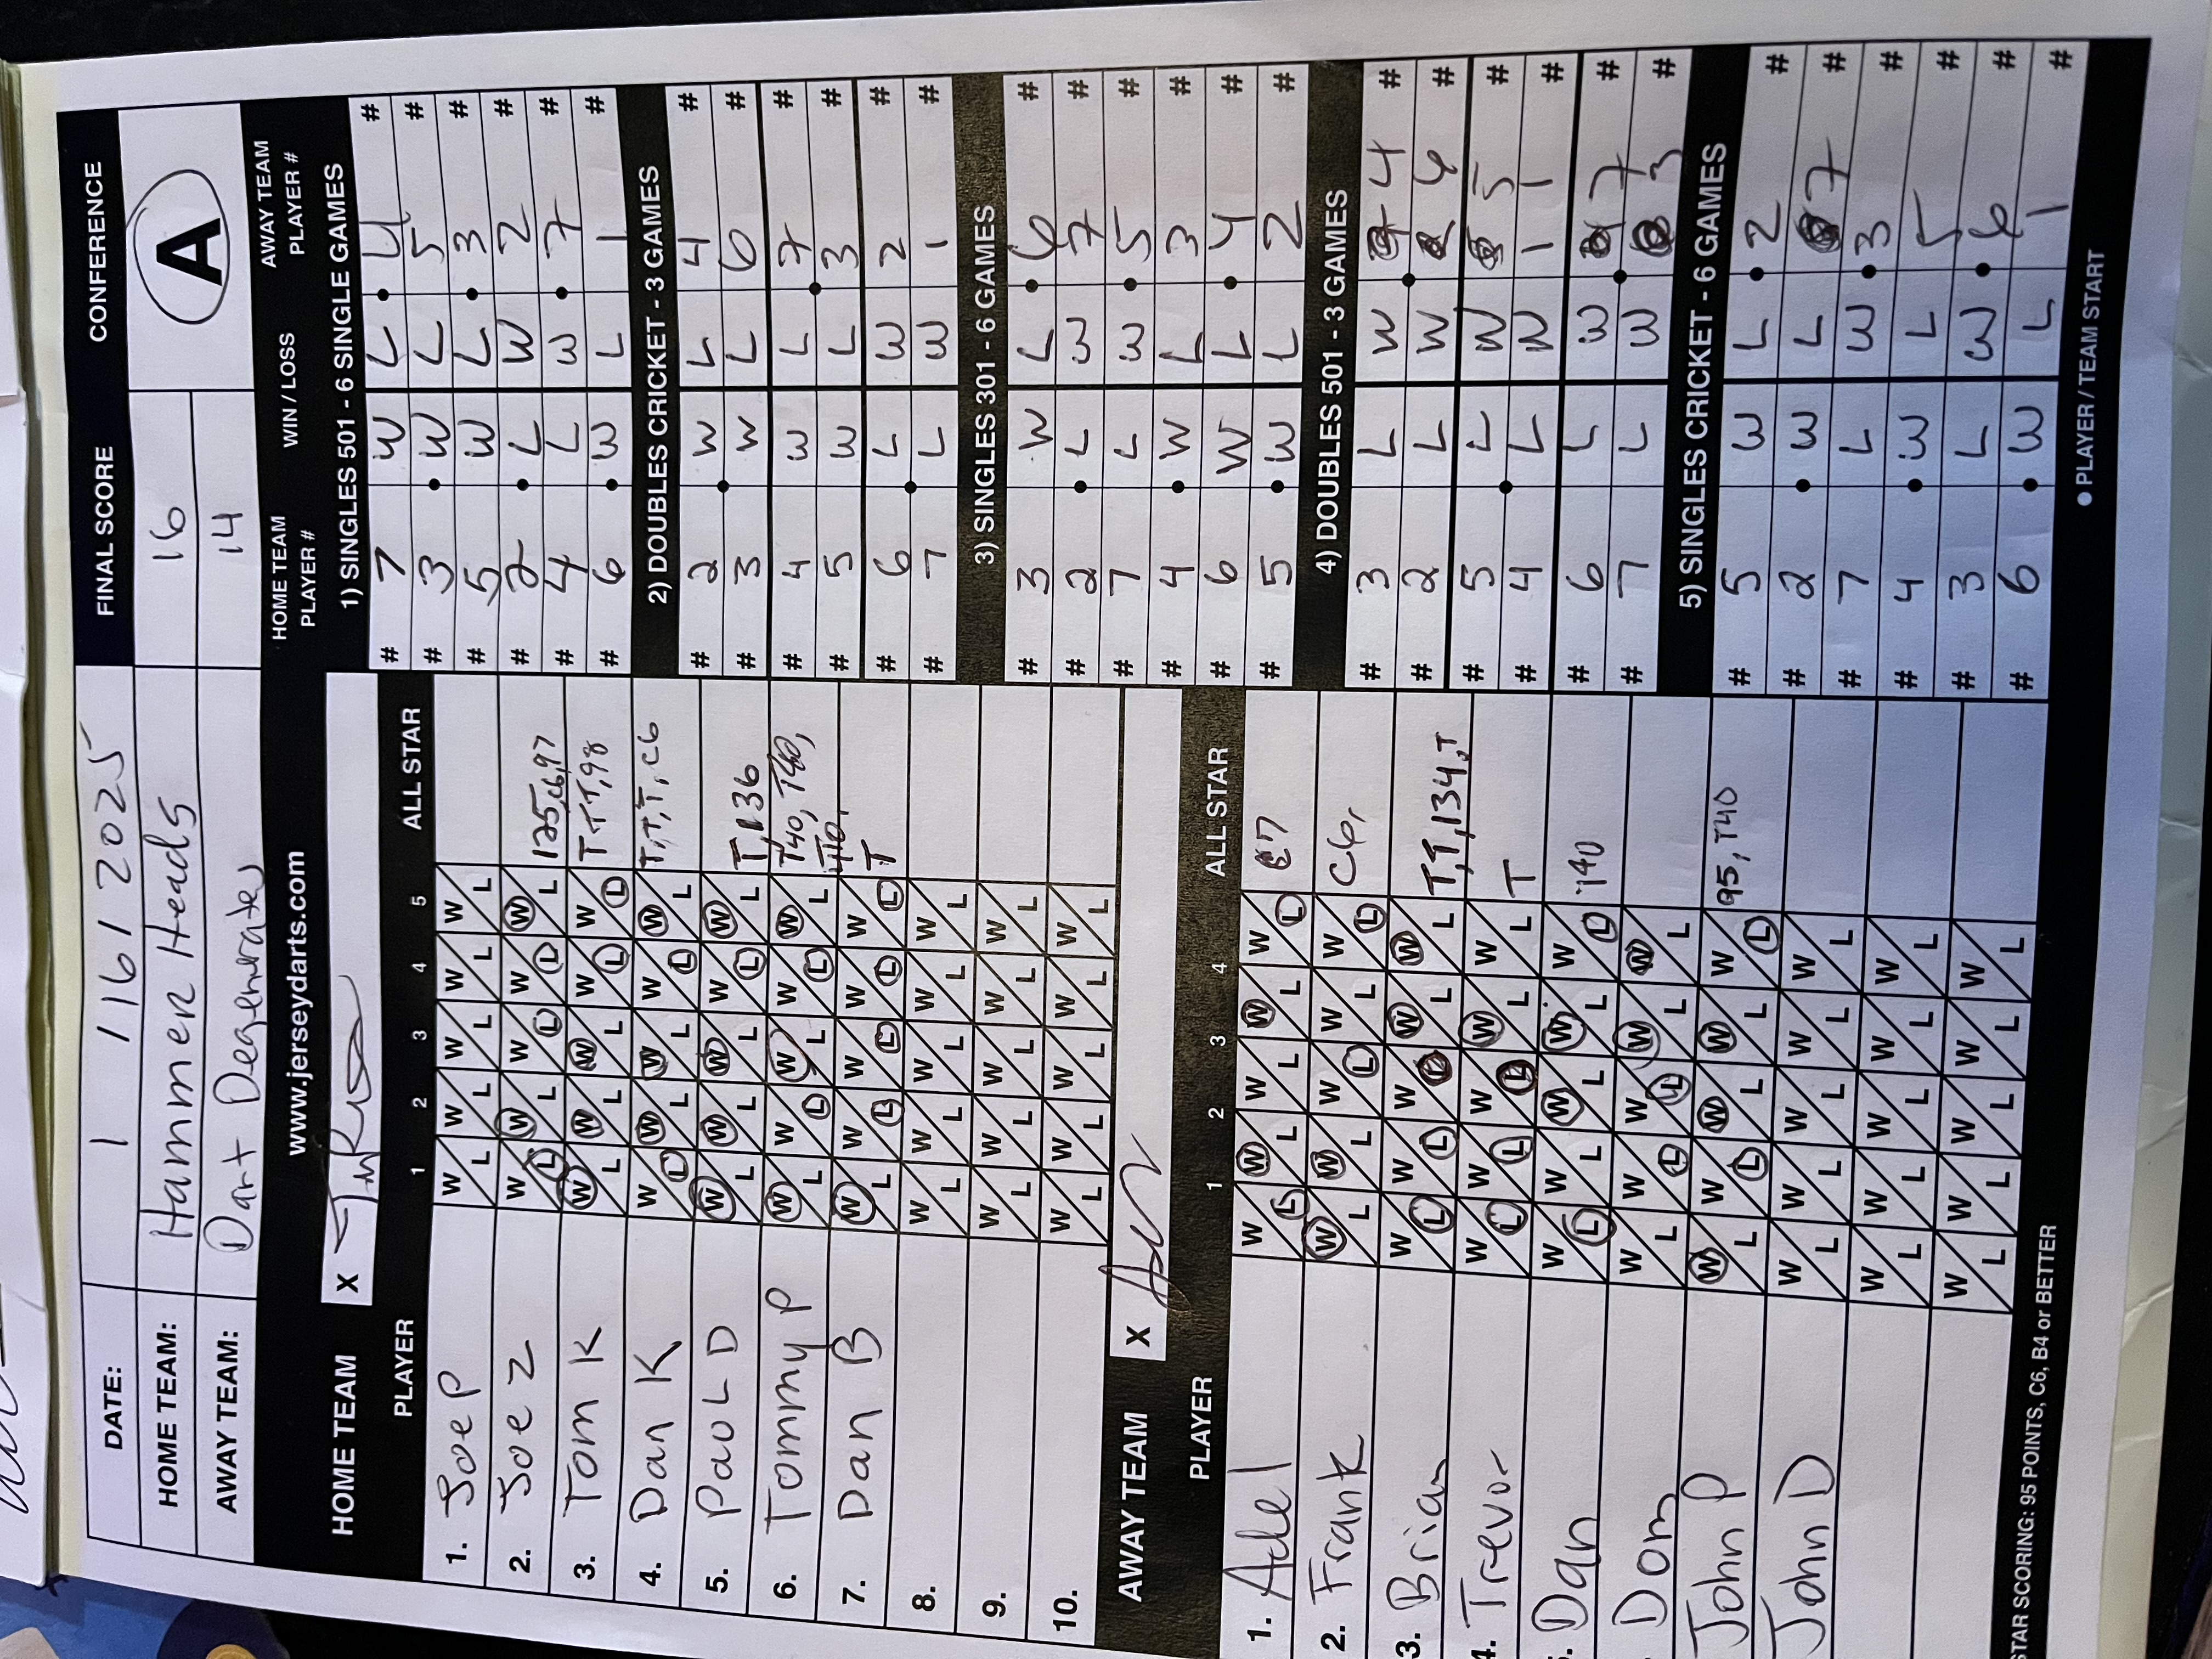 DATE: 1 / 16 / 2025 FINAL SCORE CONFERENCE
HOME TEAM: Hammer Heads 16 A
AWAY TEAM: Dart Degenerates 14
www.jerseydarts.com
HOME TEAM X
PLAYER 1 2 3 4 5 ALL STAR
1. Joe P W/L W/L W/L W/L W/L
2. Joe Z W/L W/L W/L W/L W/L 125, C6, 97
3. Tom K W/L W/L W/L W/L W/L T, T, T, 98
4. Dan K W/L W/L W/L W/L W/L T, T, T, C6
5. Paul D W/L W/L W/L W/L W/L T, 136
6. Tommy P W/L W/L W/L W/L W/L T40, T40,
7. Dan B W/L W/L W/L W/L W/L T
8. W/L W/L W/L W/L W/L
9. W/L W/L W/L W/L W/L
10. W/L W/L W/L W/L W/L
AWAY TEAM X
PLAYER 1 2 3 4 ALL STAR
1. Adel W/L W/L W/L W/L W/L C7
2. Frank W/L W/L W/L W/L W/L C6,
3. Brian W/L W/L W/L W/L W/L T, T, 134, T
4. Trevor W/L W/L W/L W/L W/L T
5. Dan W/L W/L W/L W/L W/L 140
Dom W/L W/L W/L W/L W/L
John P W/L W/L W/L W/L W/L 95, T40
John D W/L W/L W/L W/L W/L
W/L W/L W/L W/L W/L
W/L W/L W/L W/L W/L
STAR SCORING: 95 POINTS, C6, B4 or BETTER
HOME TEAM PLAYER # WIN / LOSS AWAY TEAM PLAYER #
1) SINGLES 501 - 6 SINGLE GAMES
# 7 W L 4 #
# 3 W L 5 #
# 5 W L 3 #
# 2 L W 2 #
# 4 L W 7 #
# 6 W L 1 #
2) DOUBLES CRICKET - 3 GAMES
# 2 W L 4 #
# 3 W L 6 #
# 4 W L 7 #
# 5 W L 3 #
# 6 L W 2 #
# 7 L W 1 #
3) SINGLES 301 - 6 GAMES
# 3 W L 6 #
# 2 L W 7 #
# 7 L W 5 #
# 4 W L 3 #
# 6 W L 4 #
# 5 W L 2 #
4) DOUBLES 501 - 3 GAMES
# 3 L W 4 #
# 2 L W 6 #
# 5 L W 5 #
# 4 L W 1 1 #
# 6 L W 7 #
# 7 L W 3 #
5) SINGLES CRICKET - 6 GAMES
# 5 W L 2 #
# 2 W L 7 #
# 7 L W 3 #
# 4 W L 5 #
# 3 L W 6 #
# 6 W L 1 #
● PLAYER / TEAM START